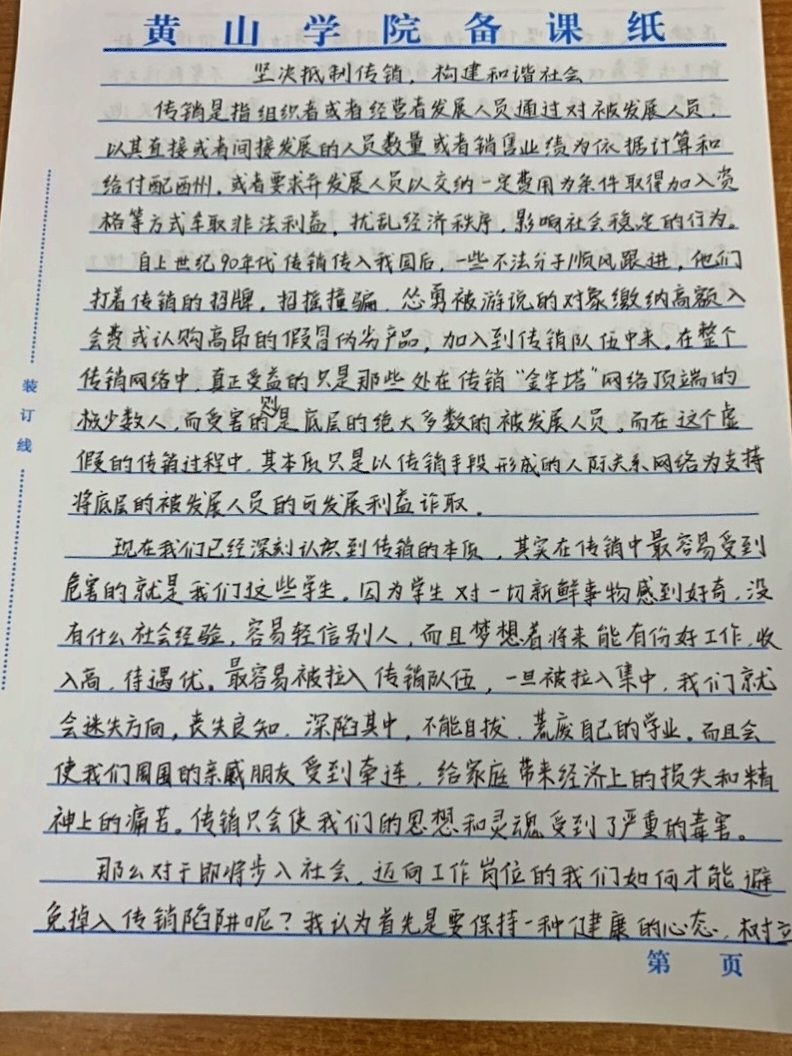 黄山学院备课纸
坚决抵制传销，构建和谐社会
传销是指组织者或者经营者发展人员通过对被发展人员，
以其直接或者间接发展的人员数量或者销售业绩为依据计算和
给付配西州，或者要求弃发展人员以交纳一定费用为条件取得加入资
格等方式牟取非法利益，扰乱经济秩序，影响社会稳定的行为。
自上世纪90年代传销传入我国后，一些不法分子顺风跟进，他们
打着传销的招牌，招摇撞骗，怂勇被游说的对象缴纳高额入
会费或认购高昂的假冒伪劣产品，加入到传销队伍中来。在整个
传销网络中，真正受益的只是那些处在传销“金字塔”网络顶端的
极少数人，而受害的则是底层的绝大多数的被发展人员。而在这个虚
假的传销过程中，其本质只是以传销手段形成的人际关系网络为支持
将底层的被发展人员的可发展利益诈取。
现在我们已经深刻认识到传销的本质，其实在传销中最容易受到
危害的就是我们这些学生。因为学生对一切新鲜事物感到好奇，没
有什么社会经验，容易轻信别人，而且梦想着将来能有份好工作，收
入高，待遇优。最容易被拉入传销队伍，一旦被拉入集中，我们就
会迷失方向，丧失良知，深陷其中，不能自拔，荒废自己的学业。而且会
使我们周围的亲戚朋友受到牵连，给家庭带来经济上的损失和精
神上的痛苦。传销只会使我们的思想和灵魂受到了严重的毒害。
那么对于即将步入社会，迈向工作岗位的我们如何才能避
免掉入传销陷阱呢？我认为首先是要保持一种健康的心态，树立
装订线
第 页